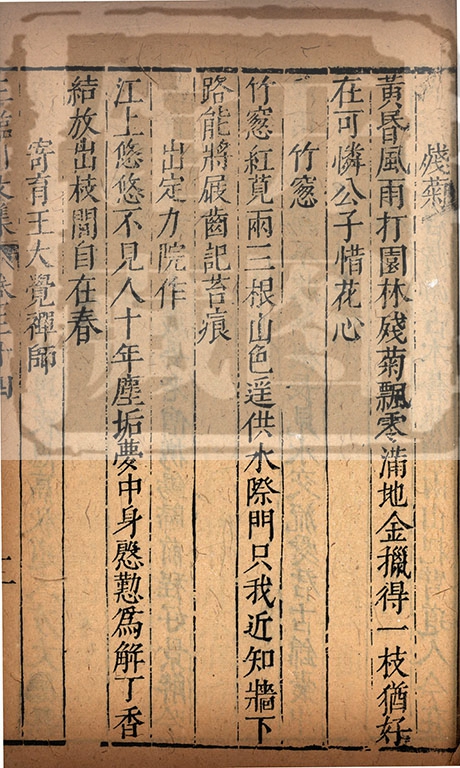 殘菊
黃昏風雨打園林殘菊飄寒滿地金擸得一枝猶好
在可憐公子惜花心
竹窓
竹窓紅莧兩三根山色遥供水際門只我近知牆下
路能將屐齒記苔痕
出定力院作
江上悠悠不見人十年塵垢夢中身慇懃為解丁香
結放出枝間自在春
寄育王大覺禪師
王臨川文集 卷三十四